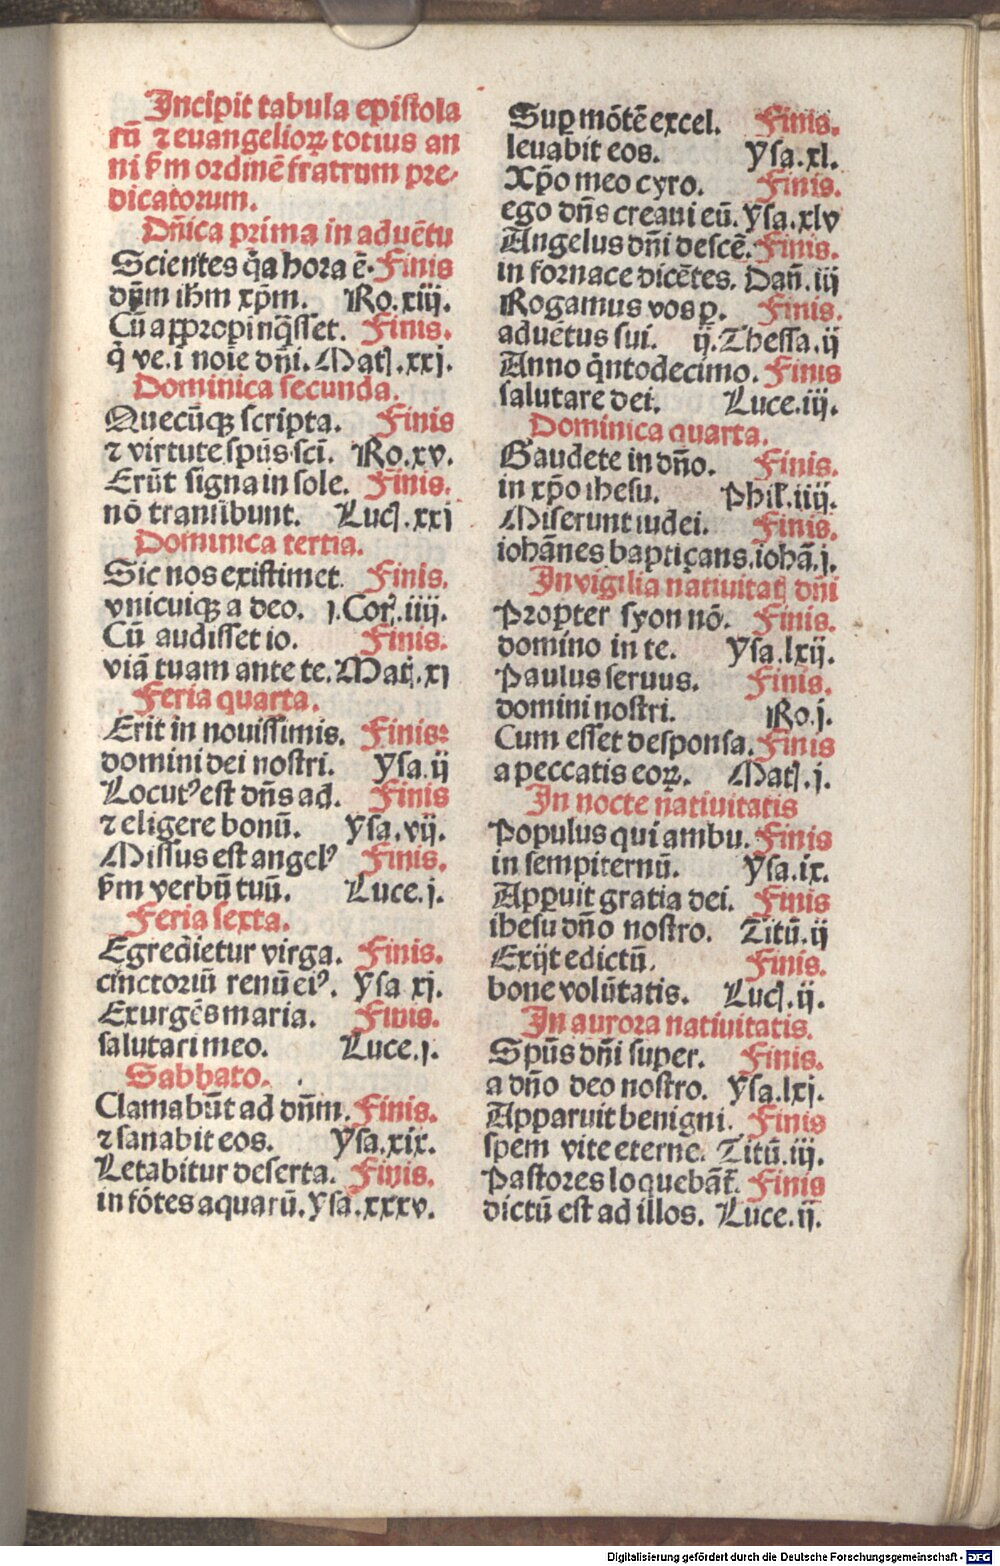 Incipit tabula epistola
rū ⁊ euangelioꝝ totius an
ni ẜm ordinē fratrum pre-
dicatorum.
Dn̄ica prima in aduētu
Scientes q̄a hora ē. Finis
dn̄m ihm xp̄m. Ro.xiij.
Cū appropinq̄sset. Finis.
q̄ ve. i noīe dn̄i. Matꝭ.xxj.
Dominica secunda.
Quecūqꝫ scripta. Finis
⁊ virtute spūs sci. Ro.xv.
Erūt signa in sole. Finis.
nō transibunt. Lucꝭ.xxi
Dominica tertia.
Sic nos existimet. Finis.
vnicuiqꝫ a deo. j.Cor̄.iiij.
Cū audisset io. Finis.
viā tuam ante te. Matꝭ.xj
Feria quarta.
Erit in nouissimis. Finis:
domini dei nostri. Ysa.ij
Locutꝰ est dn̄s ad. Finis
⁊ eligere bonū. Ysa.vij.
Missus est angelꝰ Finis.
ẜm verbū tuū. Luce.j.
Feria sexta.
Egredietur virga. Finis.
cinctoriū renū eiꝰ. Ysa xj.
Exurgēs maria. Finis.
salutari meo. Luce.j.
Sabbato.
Clamabūt ad dn̄m. Finis.
⁊ sanabit eos. Ysa.xix.
Letabitur deserta. Finis.
in fōtes aquarū. Ysa.xxxv.
Suꝑ mōtē excel. Finis.
leuabit eos. Ysa.xl.
Xp̄o meo cyro. Finis.
ego dn̄s creaui eū. Ysa.xlv
Angelus dn̄i descē. Finis.
in fornace dicētes. Dan̄.iij
Rogamus vos ꝑ. Finis.
aduētus sui. ij.Thessa.ij
Anno q̄ntodecimo. Finis
salutare dei. Luce.iij.
Dominica quarta.
Gaudete in dn̄o. Finis.
in xp̄o ihesu. Phil̄.iiij.
Miserunt iudei. Finis.
iohānes baptiçans. iohā.j.
In vigilia natiuitatꝭ dn̄i
Propter syon nō. Finis.
domino in te. Ysa.lxij.
Paulus seruus. Finis.
domini nostri. Ro.j.
Cum esset desponsa. Finis
a peccatis eoꝝ. Matꝭ.j.
In nocte natiuitatis
Populus qui ambu. Finis
in sempiternū. Ysa.ix.
Apꝑuit gratia dei. Finis
ihesu dn̄o nostro. Titū.ij
Exijt edictū. Finis.
bone volūtatis. Lucꝭ.ij.
In aurora natiuitatis.
Spūs dn̄i super. Finis.
a dn̄o deo nostro. Ysa.lxj.
Apparuit benigni. Finis
spem vite eterne. Titū.iij.
Pastores loquebāt̄. Finis
dictū est ad illos. Luce.ij.
Digitalisierung gefördert durch die Deutsche Forschungsgemeinschaft - DFG